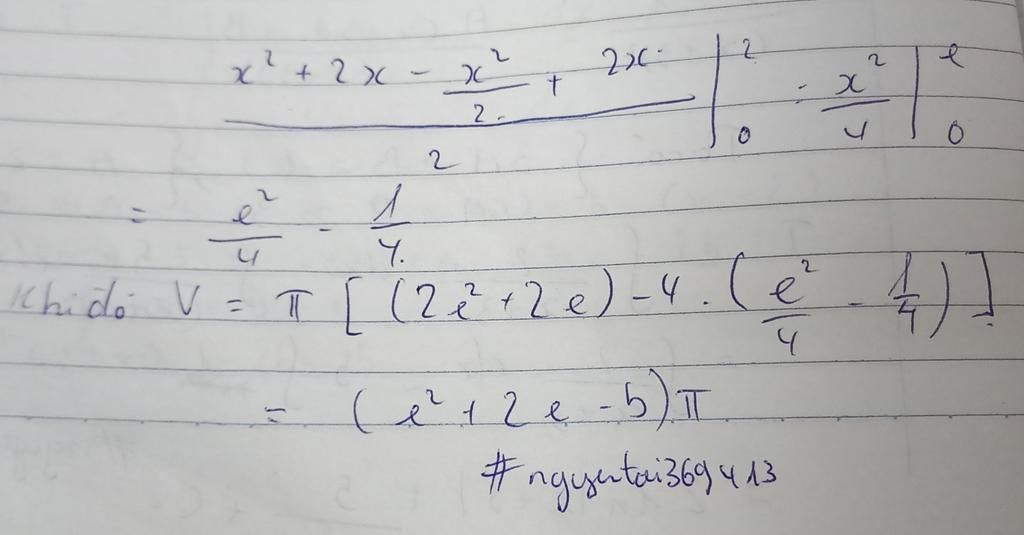 x² + 2x - x²/2 + 2x / 2 |₀² - x²/4 |₀ᵉ
= e²/4 - 1/4
Khi đó V = π [ (2e² + 2e) - 4 . ( e²/4 - 1/4 ) ]
= (e² + 2e - 5) π
#nguyentai369413